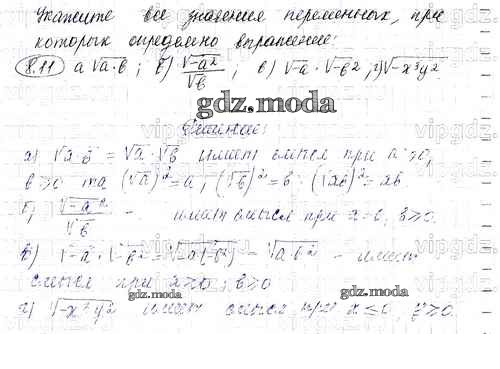 Укажите все значения переменных, при
которых определено выражение:
8.11 а √a·b ; б) √-a² / √b ; в) √-a · √-b² ; г) √-x³y²
gdz.moda
Решение:
а) √a·b = √a · √b имеет смысл при a ≥ 0,
b ≥ 0 та (√a)² = a, (√b)² = b (√ab)² = ab
б) √-a² / √b - имеет смысл при a=0, b>0.
смысл при a≥0, b≥0
gdz.moda
г) √-x³y² имеет смысл при x ≤ 0, y ≥ 0.
gdz.moda